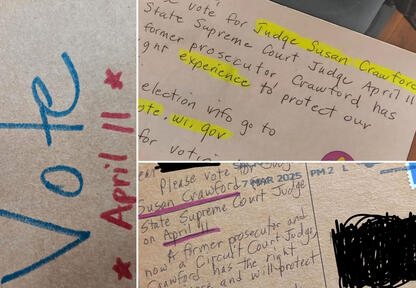 Vote
* April 11 *
vote for Judge Susan Crawford
State Supreme Court Judge April 11
former prosecutor Crawford has
experience to protect our
election info go to
.wi.gov
for
Please vote for
Susan Crawford 7 MAR 2025 PM 2 L
State Supreme Court Judge
on April 11
A former prosecutor and
now a Circuit Court Judge
Crawford has the right
and will protect